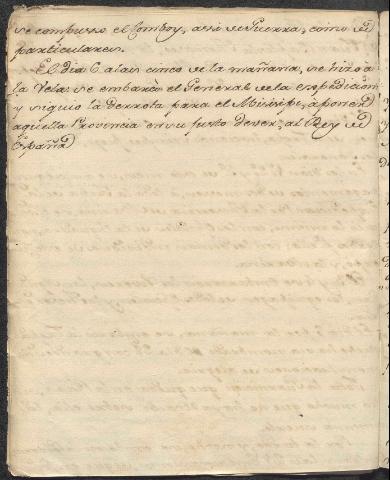 se compusso el Comboy, assi de Guerra, como de
particulares.
El dia 6. a las cinco de la mañana, se hizo a
la Vela: se embarcó el General de la expedicion
y siguio la Derrota para el Missisipi, a poner
aquella Provincia en su justo dever, al Rey de
España